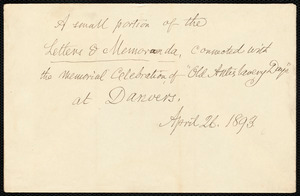 A small portion of the
Letters & Memoranda, connected with
the Memorial Celebration of "Old Anti-Slavery Days"
at Danvers.
April 26. 1893